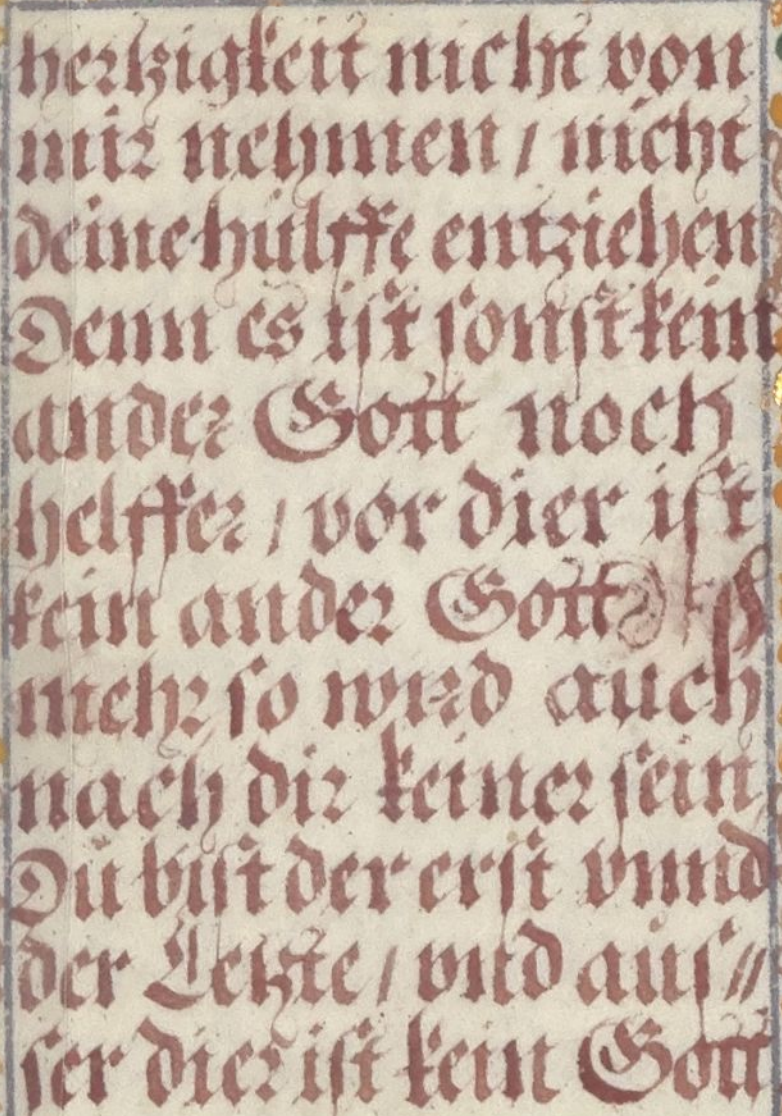 hertzigkeit nicht von
mir nehmen / nicht
deine hülffe entziehen
Denn es ist sonst kein
ander Gott noch
helffer / vor dier ist
kein ander Gott
mehr so wird auch
nach dir keiner sein
Du bist der erst vnnd
der Letzte / vnd aus⸗
ser dier ist kein Gott